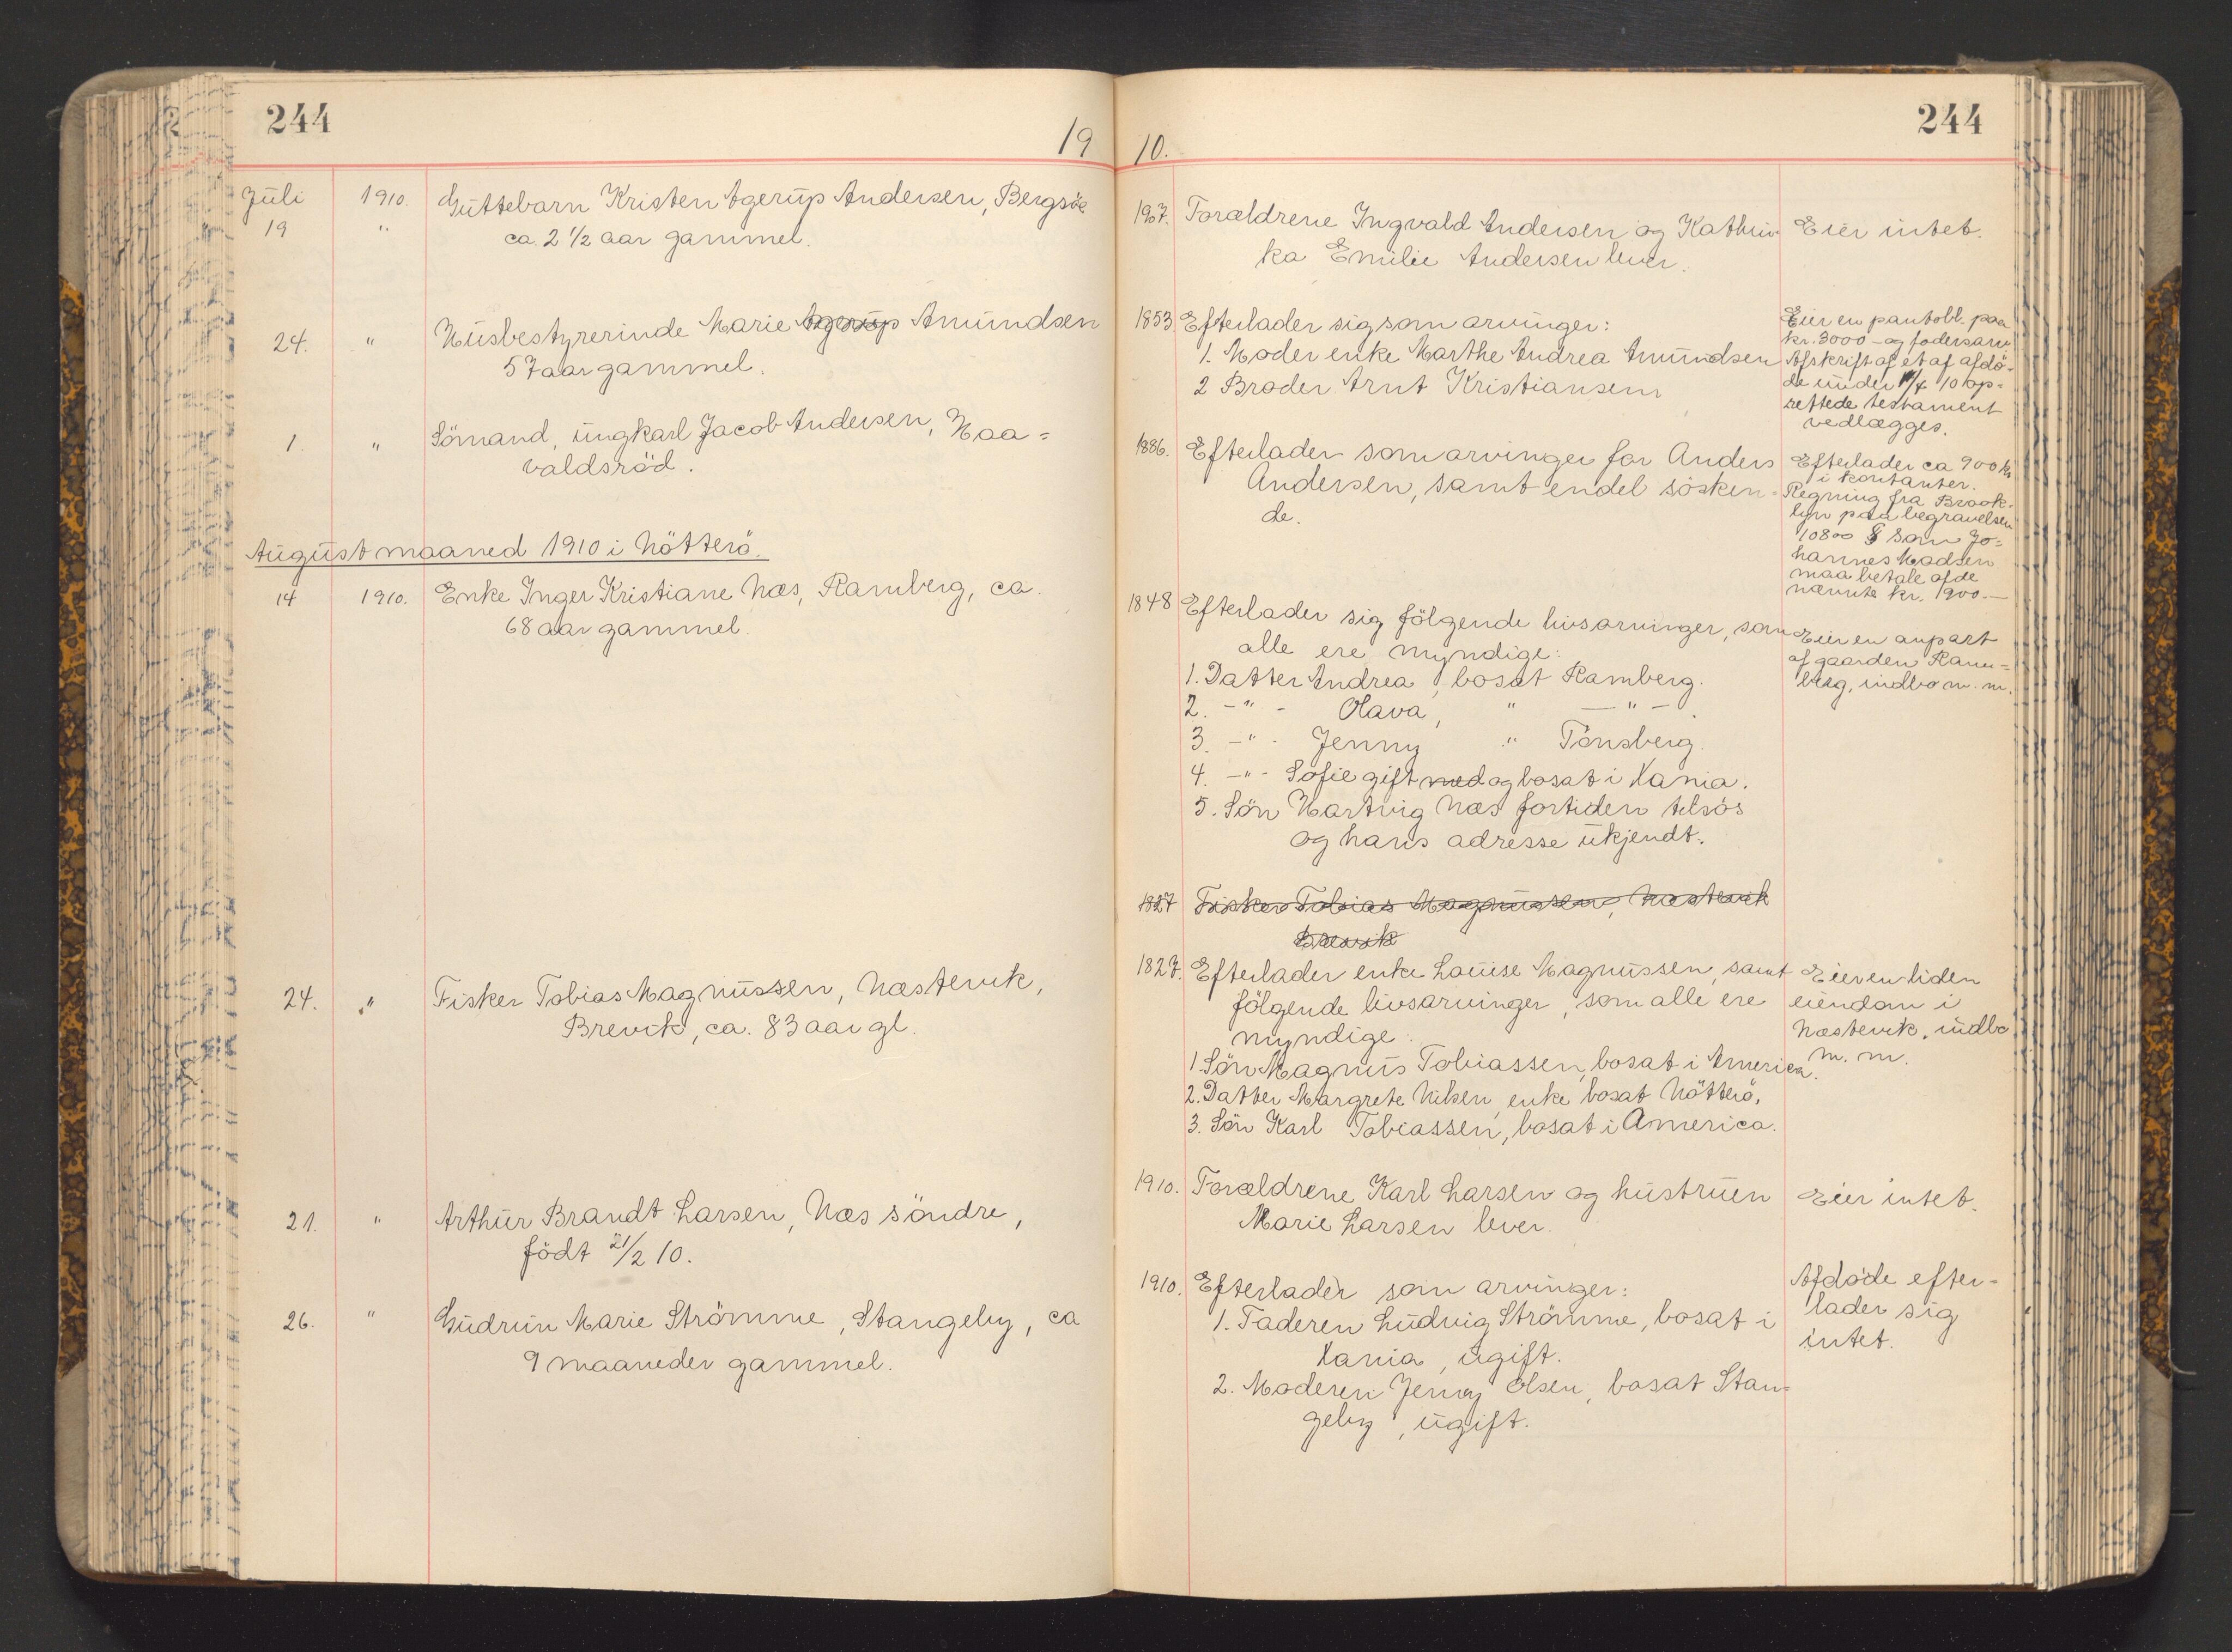 244
19
Juli 1910. Guttebarn Kristen Agerup Andersen, Bergsöe
19 " ca. 2 1/2 aar gammel.
24. " Husbestyrerinde Marie Agerup Amundsen
57 aar gammel.
1. " Sömand, ungkarl Jacob Andersen, Haa=
valdsröd.
August maaned 1910 i Nötterö.
14 1910. Enke Inger Kristiane Næs, Ramberg, ca.
68 aar gammel.
24. " Fisker Tobias Magnussen, Næstevik,
Brevik, ca. 83 aar gl.
21. " Arthur Brandt Larsen, Næs söndre,
födt 21/2 10.
26. " Gudrun Marie Strömme, Stangeby, ca
9 maaneder gammel.
244
10.
1907. Forældrene Ingvald Andersen og Kathrin
ka Emilie Andersen lever.
Eier intet.
1853 Efterlader sig som arvinger:
1. Moder enke Marthe Andrea Amundsen
2 Broder Arnt Kristiansen
Eier en pantobl. paa
kr. 3000 - og fodersarv
Afskrift af et af afdö-
de under /4 10 op=
rettede testament
vedlægges.
1886. Efterlader som arvinger far Anders
Andersen, samt endel sösken=
de.
Efterlader ca 900 kr
i kontanter.
Regning fra Brook-
lyn paa begravelsen
10800 $ som Jo=
hannes Madsen
maa betale af de
nævnte kr. 900.—
1848 Efterlader sig fölgende livsarvinger, som
alle ere myndige:
1. Datter Andrea, bosat Ramberg.
2. - " - Olava, " — " — .
3. - " - Jenny " Tönsberg.
4. - " - Sofie gift med og bosat i Kania.
5. Sön Hartvig Næs fortiden tilsös
og hans adresse ukjendt.
Eier en anpart
af gaarden Ram=
berg, indbo m. m.
1827 Fisker Tobias Magnussen, Næstevik
Brevik
1827. Efterlader enke Louise Magnussen, samt
fölgende livsarvinger, som alle ere
myndige:
1. Sön Magnus Tobiassen, bosat i America.
2. Datter Margrete Nilsen, enke bosat Nötterö.
3. Sön Karl Tobiassen, bosat i America.
Eier en liden
eiendom i
Næstevik, indbo
m. m.
1910. Forældrene Karl Larsen og hustruen
Marie Larsen lever.
Eier intet.
1910. Efterlader som arvinger:
1. Faderen Ludvig Strömme, bosat i
Kania, ugift.
2. Moderen Jenny Olsen, bosat Stan=
geby, ugift.
Afdöde efter-
lader sig
intet.